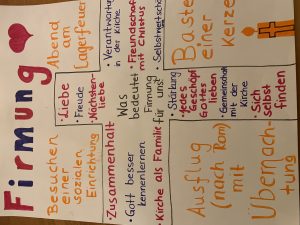 Firmung
Besuchen
einer
sozialen
Einrichtung
• Liebe
• Freude
• Nächsten-
liebe
Abend
am
Lagerfeuer
• Zusammenhalt
• Gott besser
kennenlernen
• Kirche als Familie
Was
bedeutet
Firmung
für uns?
in der Kirche
• Freundschaft
mit Christus
Ausflug
(nach Rom)
mit
Übernach-
tung
• Stärkung
• jedes
Geschöpf
Gottes
lieben
• Gemeinschaft
mit der
Kirche
• Sich
selbst
finden
einer
Kerze